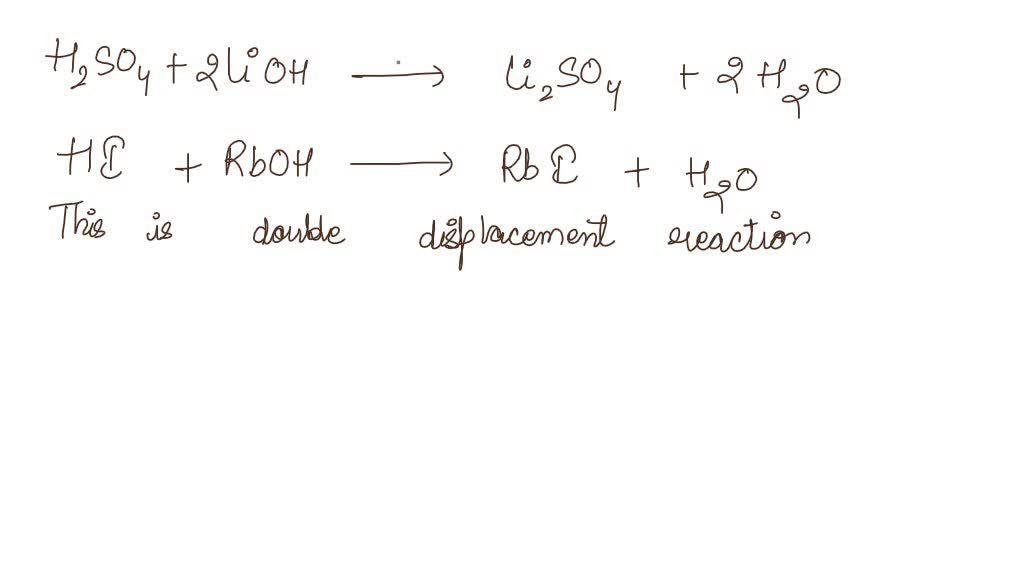 H₂SO₄ + 2LiOH ⟶ Li₂SO₄ + 2H₂O
HI + RbOH ⟶ RbI + H₂O
This is double displacement reaction